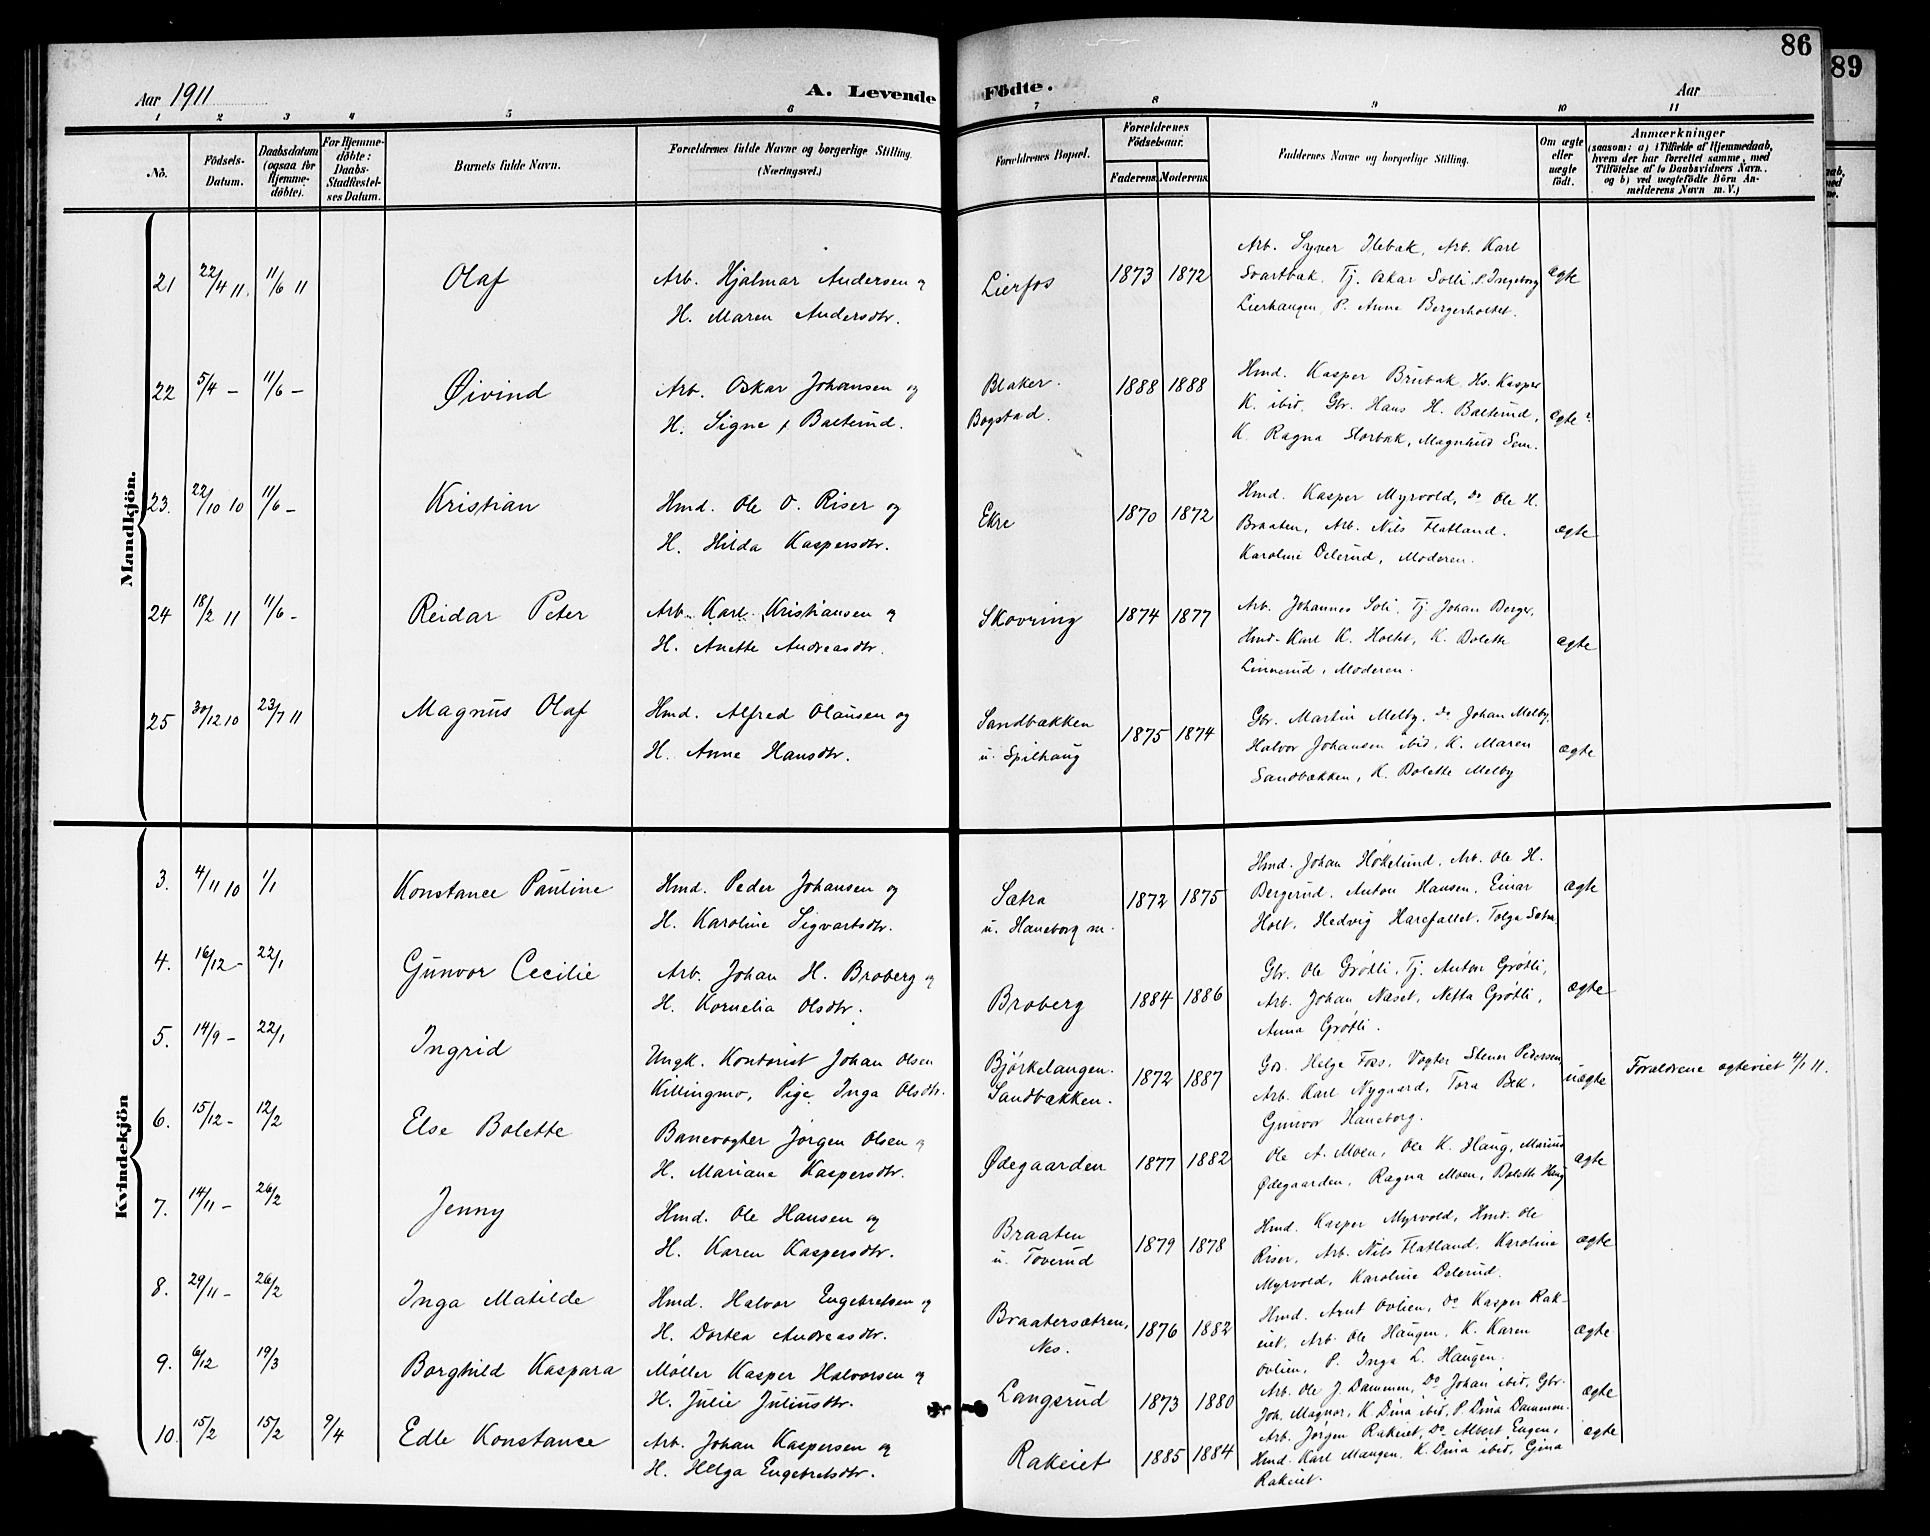 86
89
Aar 1911
A. Levende Födte.
Aar
1 2 3 4 5 6 7 8 9 10 11
No.
Födsels-Datum.
Daabsdatum (ogsaa for Hjemme-döbte).
For Hjemme-döbte: Daabs-Stadfæstel-ses Datum.
Barnets fulde Navn.
Forældrenes fulde Navne og borgerlige Stilling. (Næringsvei.)
Forældrenes Bopæl.
Forældrenes Födselsaar.
Faderens. Moderens.
Faddernes Navne og borgerlige Stilling.
Om ægte eller uægte født.
Anmærkninger
(saasom: a) i Tilfælde af Hjemmedaab,
hvem der har forrettet samme, med
Tilföielse af to Daabsvidners Navn.
og b) ved uægtefödte Börn An-
melderens Navn m. V.)
Mandkjön.
21 22/4 11. 11/6 11 Olaf Arb. Hjalmar Andersen og Lierfos 1873 1872 Arb. Syver Ilebak, Arb. Karl ægte
H. Maren Andersdtr. Svartbak, Tj. Oskar Solli, P. Ingeborg
Lierhaugen, P. Anna Bergerholtet.
22 5/4 - 11/6 - Øivind Arb. Oskar Johansen og Blaker. 1888 1888 Hmd. Kasper Brubak, Hs. Kasper ægte?
H. Signe Balterud. Bogstad. K. ibid, Gbr. Hans H. Balterud,
K. Ragna Storbak, Magnhild Sem.
23. 22/10 10 11/6 - Kristian Hmd. Ole O. Riser og Ekre 1870 1872 Hmd. Kasper Myrvold, Do Ole H. ægte
H. Hilda Kaspersdtr. Braaten, Arb. Nils Flatland.
Karoline Delerud, Moderen.
24 18/2 11 11/6 - Reidar Peter Arb. Karl Kristiansen og Skovring 1874 1877 Arb. Johannes Soli, Tj. Johan Berger, ægte
H. Anette Andreasdtr. Hmd. Karl K. Holtet, K. Bolette
Linnerud, Moderen.
25 30/12 10 23/7 11 Magnus Olaf Hmd. Alfred Olausen og Sandbækken 1875 1874 Gbr. Martin Melby, Do Johan Melby, ægte
H. Anne Hansdtr. u. Spilhaug Halvor Johansen ibid, K. Maren
Sandbækken, K. Bolette Melby
Kvindekjön
3. 4/11 10 1/1 Konstance Pauline Hmd. Peder Johansen og Sætra 1872 1875 Hmd. Johan Høkelund, Arb. Ole H. ægte
H. Karoline Sigvartsdtr. u. Haneborg m. Bergerud, Anton Hansen, Einar
Holt, Hedvig Harefallet, Tolga Sætra
4. 16/12 - 22/1 Gunvor Cecilie Arb. Johan H. Broberg og Broberg 1884 1886 Gbr. Ole Grøtli, Tj. Anton Grøtli, ægte
H. Kornelia Olsdtr. Arb. Johan Naset, Netta Grøtli,
Anna Grøtli.
5. 14/9 - 22/1 Ingrid Ungk. Kontorist Johan Olsen Bjørkelangen. 1872 1887 Gbr. Helge Foss, Vogter Stener Pedersen, uægte Forældrene ægteviet 4/1 11.
Killingmo, Pige Inga Olsdtr. Sandbækken. Arb. Karl Nygaard, Tora Bek,
Gunvor Haneborg.
6. 15/12 - 12/2 Else Bolette Banevogter Jørgen Olsen og Ødegaarden 1877 1882 Ole A. Moen, Ole K. Haug, Marius ægte
H. Mariane Kaspersdtr. Ødegaarden, Ragna Moen, Bolette Haug
7. 14/11 - 26/2 Jenny Hmd. Ole Hansen og Braaten 1879 1878 Hmd. Kasper Myrvold, Hmd. Ole ægte
H. Karen Kaspersdtr. u. Toverud Riser, Arb. Nils Flatland, Karoline
Myrvold, Karoline Delerud.
8. 29/11 - 26/2 Inga Matilde Hmd. Halvor Engebretsen og Braatersætren, 1876 1882 Hmd. Arnt Ovlien, Do Kasper Rak- ægte
H. Dortea Andreasdtr. Nes. eiet, Arb. Ole Haugen, K. Karen
Ovlien, P. Inga L. Haugen.
9. 6/12 19/3 Borghild Kaspara Møller Kasper Halvorsen og Langsrud 1873 1880 Arb. Ole J. Dammen, Do Johan ibid, Gbr. ægte
H. Julie Juliusdtr. Joh. Magnor, K. Dina ibid, P. Dina Dammen.
10. 15/2 15/2 9/4 Edle Konstance Arb. Johan Kaspersen og Rakeiet 1885 1884 Arb. Jørgen Rakeiet, Do Albert Eugen, ægte
H. Helga Engebretsdtr. Hmd. Karl Mangen, K. Dina ibid, Gina
Rakeiet.